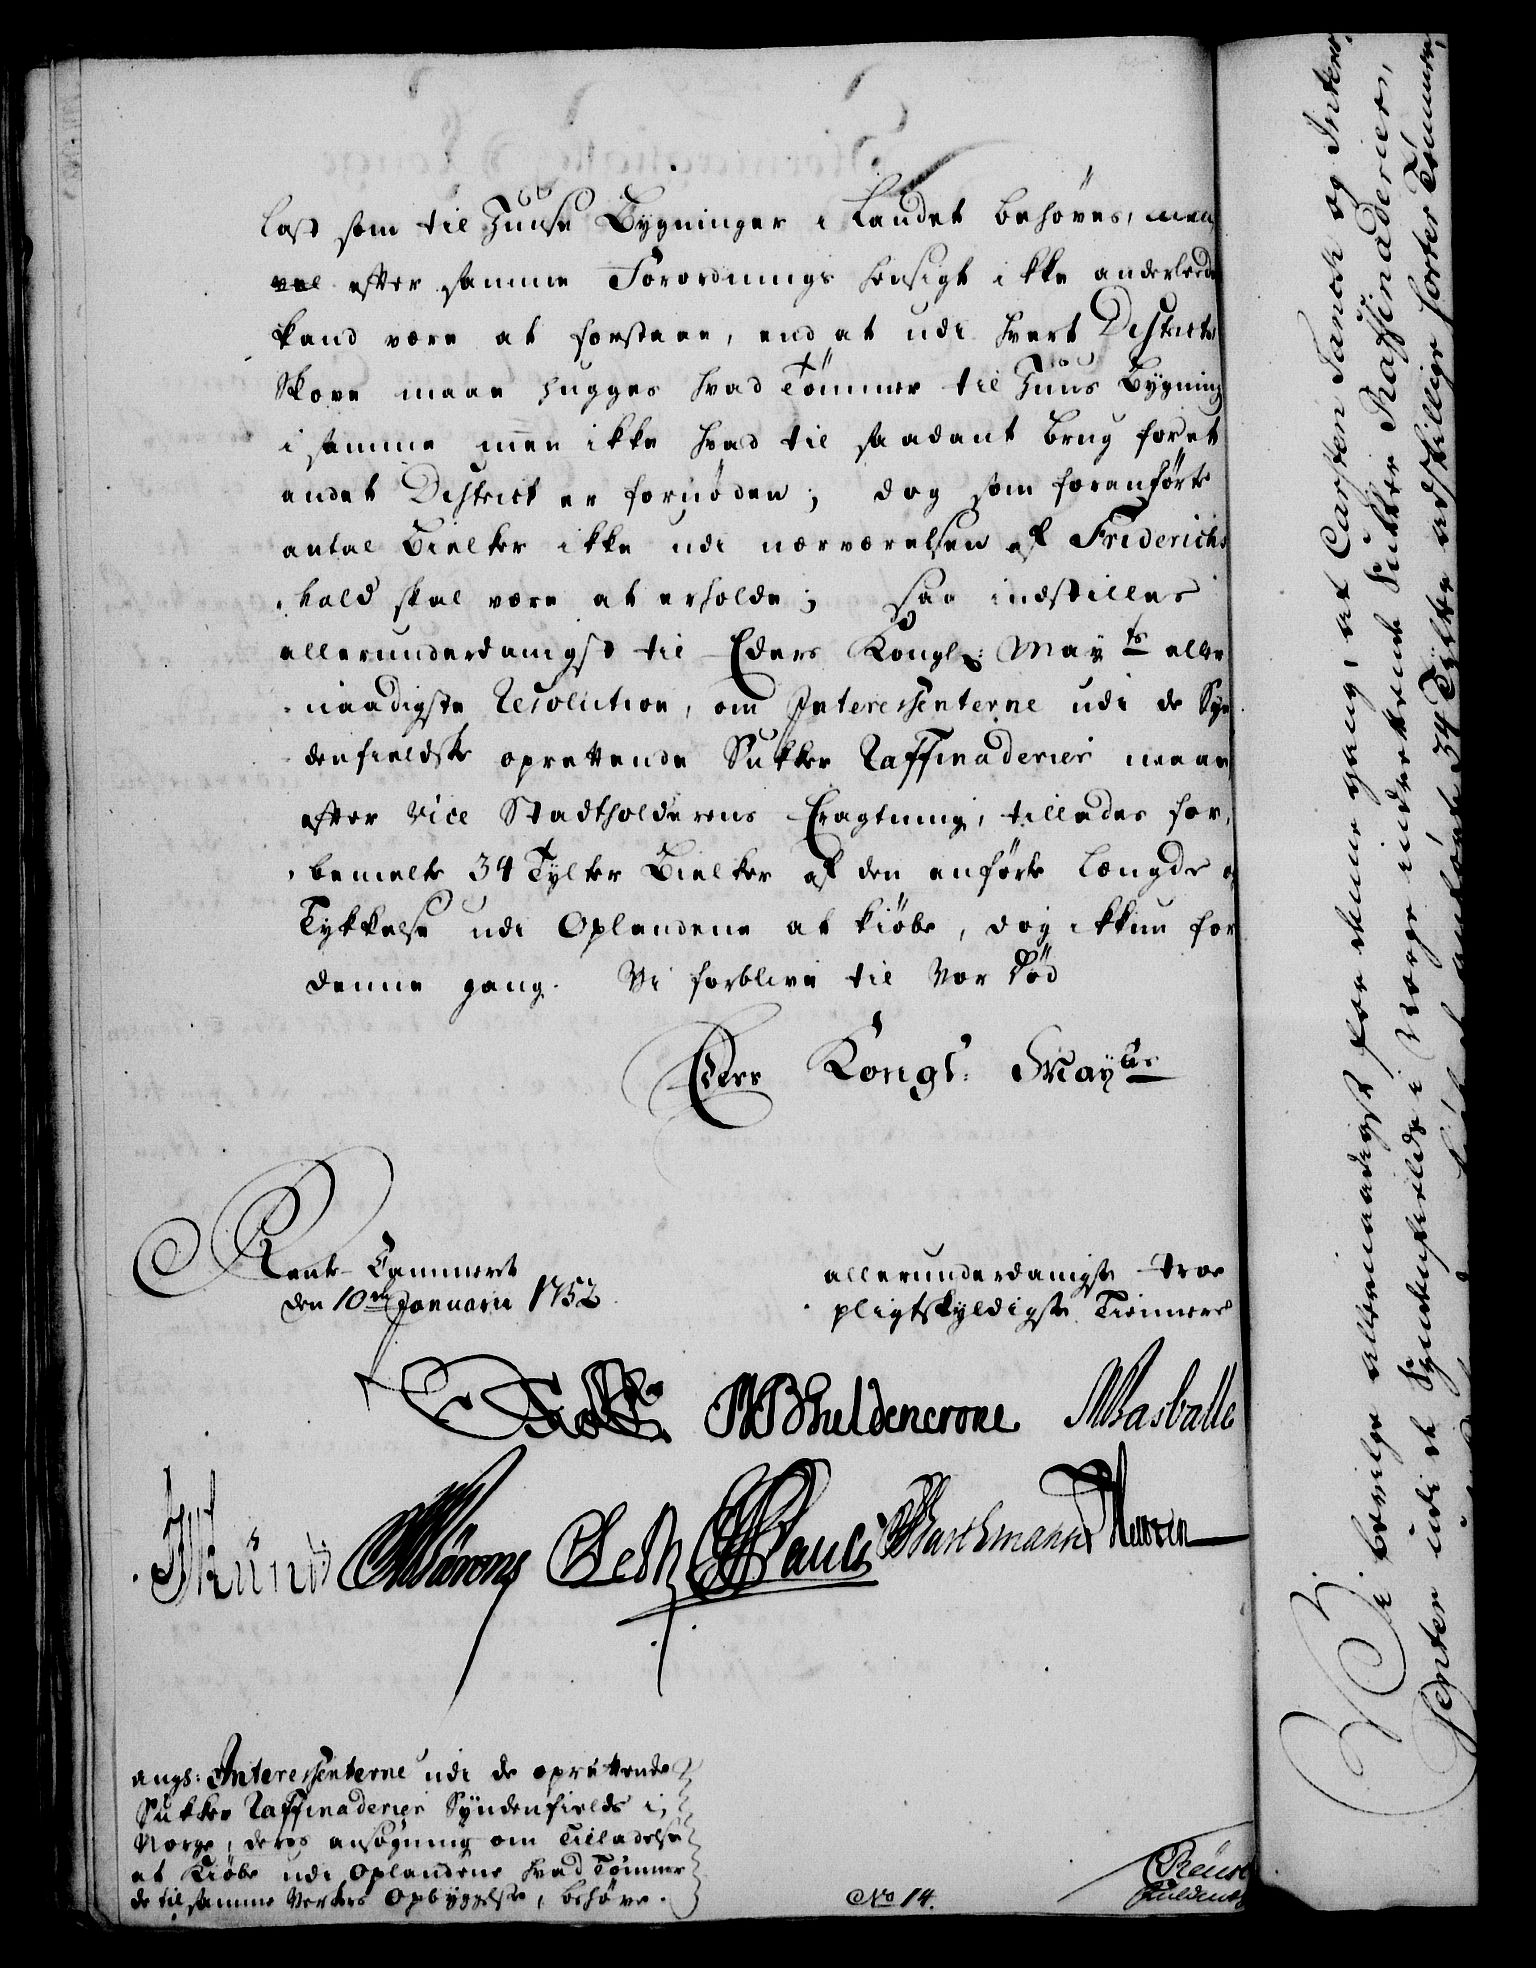 last som til Huuse Bygninger i Landet behöves, men
vel efter samme Forordnings Hensigt ikke anderleedes
kand være at forstaae, end at udi hvert Districts
Skove maae hugges hvad Tömmer til Huus Bygning
i samme men ikke hvad til saadant brug for et
andet District er fornöden; dog som foranförte
antal Bielker ikke udi nærværelsen af Friderichs
hald skal være at erholde; saa indstilles
allerunderdanigst til Eders Kongl: Mayts aller
naadigste Resolution, om Interessenterne udi de Syn
denfieldske oprettende Sukker Raffinaderier maae
efter Vice Stadtholderens Eragtning, tillades for,
bemelte 34 Tylter Bielker af den anförte Længde og
Tykkelse udi Oplandene at kiöbe, dog ikkun for
denne gang. Vi forblive til Vor Död
Eders Kongl: Mayts
Rente Cammeret
den 10de Januarii 1752
allerunderdanigste troe
pligtskyldigste Tienere
Holst JWBhuldencrone Masballe
Lesth Pauli Barthmann
angs: Interessenterne udi de oprettende
Sukker Raffinaderier Syndenfields i
Norge, deres ansögning om Tilladelse
at Kiöbe udi Oplandene hvad Tömmer
de til samme Verkers Opbyggelse, behöve.
No 14.
Vi bevilge allernaadigst for denne gang, at Carsten Tanck og Inter
senter udi de Syndenfields i Norge indrettende Sukker Raffinaderier,
34 Tylter adskillige sorter Tömmer,